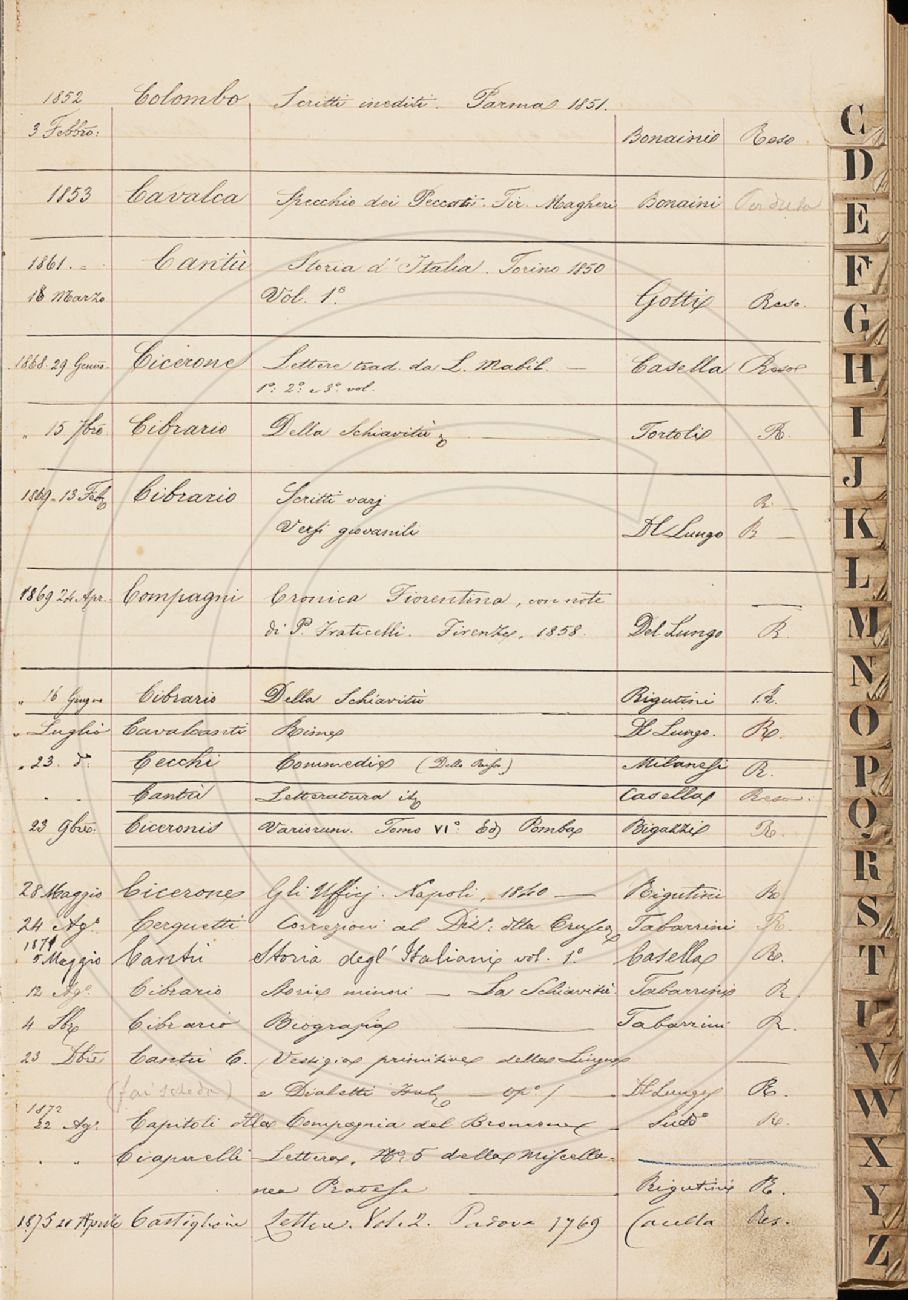 1852 Colombo Scritti inediti. Parma 1851.
3 Febbro: Bonaini Reso
1853 Cavalca Specchio dei Peccati. Fir. Magheri Bonaini Perduto
1861. Cantù Storia d'Italia. Torino 1850
18 Marzo Vol. 1.º Gotti Reso.
1868. 29 Genn. Cicerone Lettere trad. da L. Mabil — Casella Reso
1º. 2º. e 3º. vol.
" 15 7bre Cibrario Della Schiavitù Tortoli R.
1869. 13 Feb Cibrario Scritti varj R. —
Versi giovanili Dl Lungo R —
1869 24. Apr. Compagni Cronica Fiorentina, con note
di P. Fraticelli. Firenze, 1858. Del Lungo R.
" 16 Giugno Cibrario Della Schiavitù Rigutini R.
" Luglio Cavalcanti Rime Dl Lungo. R.
" 23. dº Cecchi Commedie Milanesi R.
" " Cantù Letteratura it Casella Reso.
23 9bre. Ciceronis Variorum. Tomo VIº Ed Pomba Bigazzi R.
28 Maggio Cicerone Gli Uffizj. Napoli, 1840 — Rigutini R
24 Agº. Cerquetti Correzioni al Diz. della Crusca Tabarrini R.
1871
5 Maggio Cantù Storia degl' Italiani vol. 1º. Casella R.
12 Agº. Cibrario Storie minori — La Schiavitù Tabarrini R.
4 Cibrario Biografia Tabarrini R.
23 Dbre Cantù C. Vestigia primitive della Lingua
(fai scheda) e Dialetti opº / Dl Lungo R.
1872
22 Agº. Capitoli della Compagnia del Sudº R.
" " Letter. Nº 5 della Miscella-
nea Pratese Rigutini R.
1875 20 Aprile Castiglione Lettere. Vol. 2. Padova 1769 Casella Res.
C
D
E
F
G
H
I
J
K
L
M
N
O
P
Q
R
S
T
U
V
W
X
Y
Z